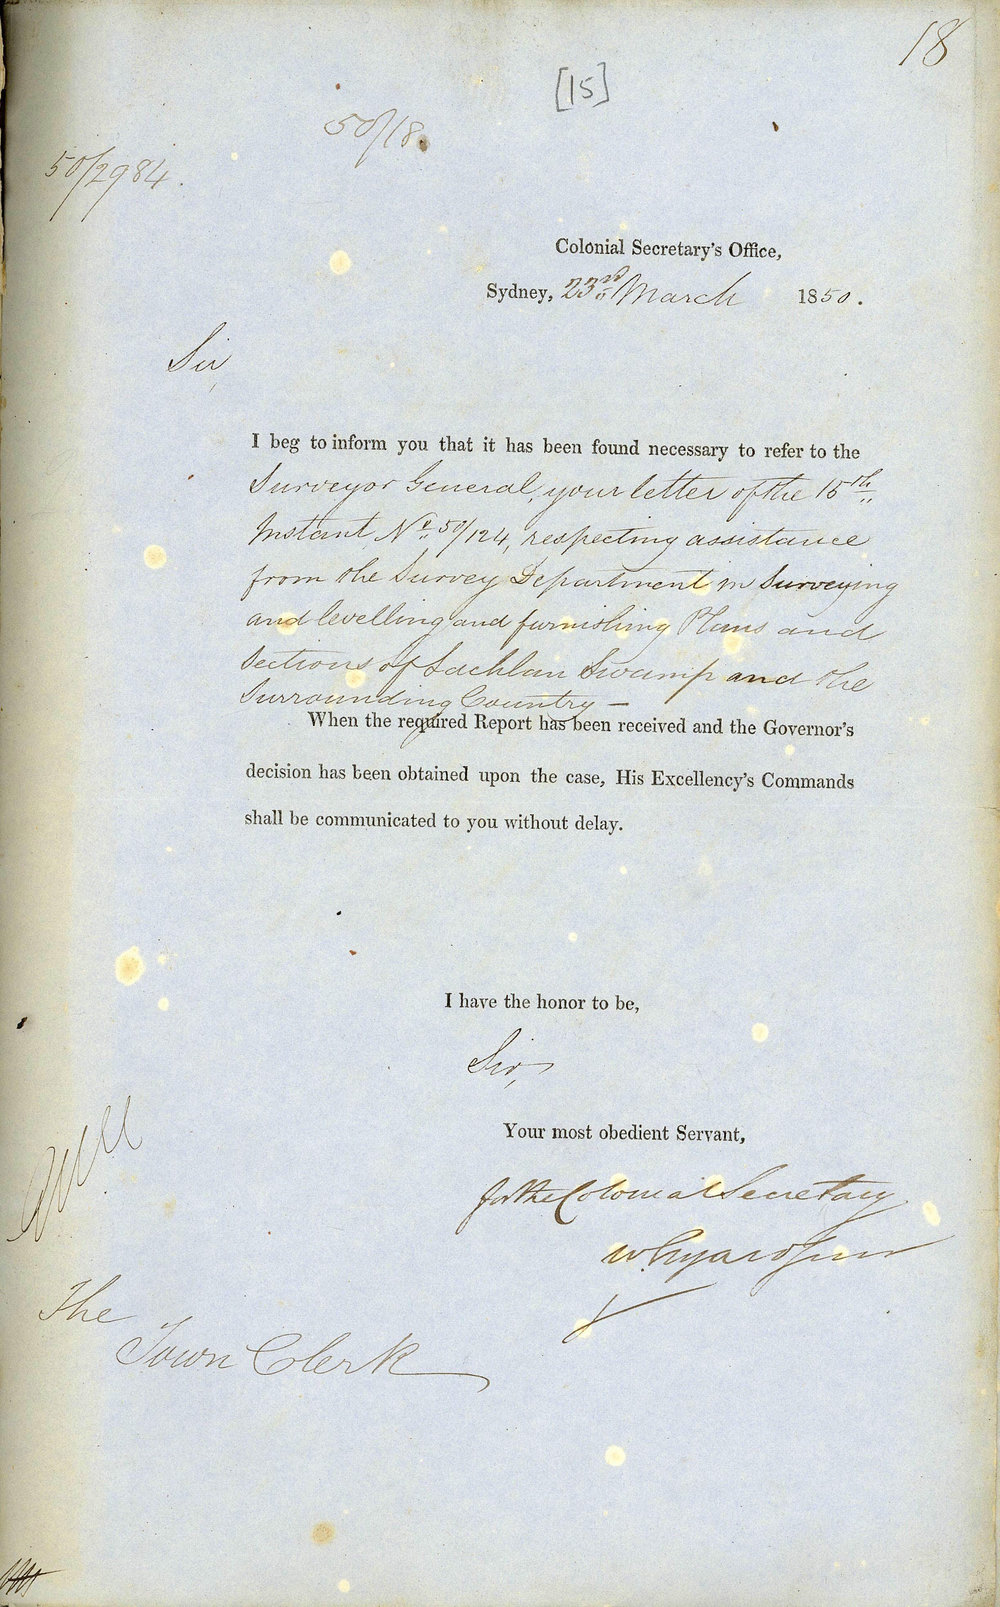 18
[15]
50/18.
50/2984.
Colonial Secretary's Office,
Sydney, 23rd March 1850.
Sir,
I beg to inform you that it has been found necessary to refer to the
Surveyor General, your letter of the 15th
Instant, No. 50/124, respecting assistance
from the Survey Department in Surveying
and levelling and furnishing Plans and
Sections of Lachlan Swamp and the
Surrounding Country —
When the required Report has been received and the Governor's
decision has been obtained upon the case, His Excellency's Commands
shall be communicated to you without delay.
I have the honor to be,
Sir,
Your most obedient Servant,
for the Colonial Secretary
The
Town Clerk